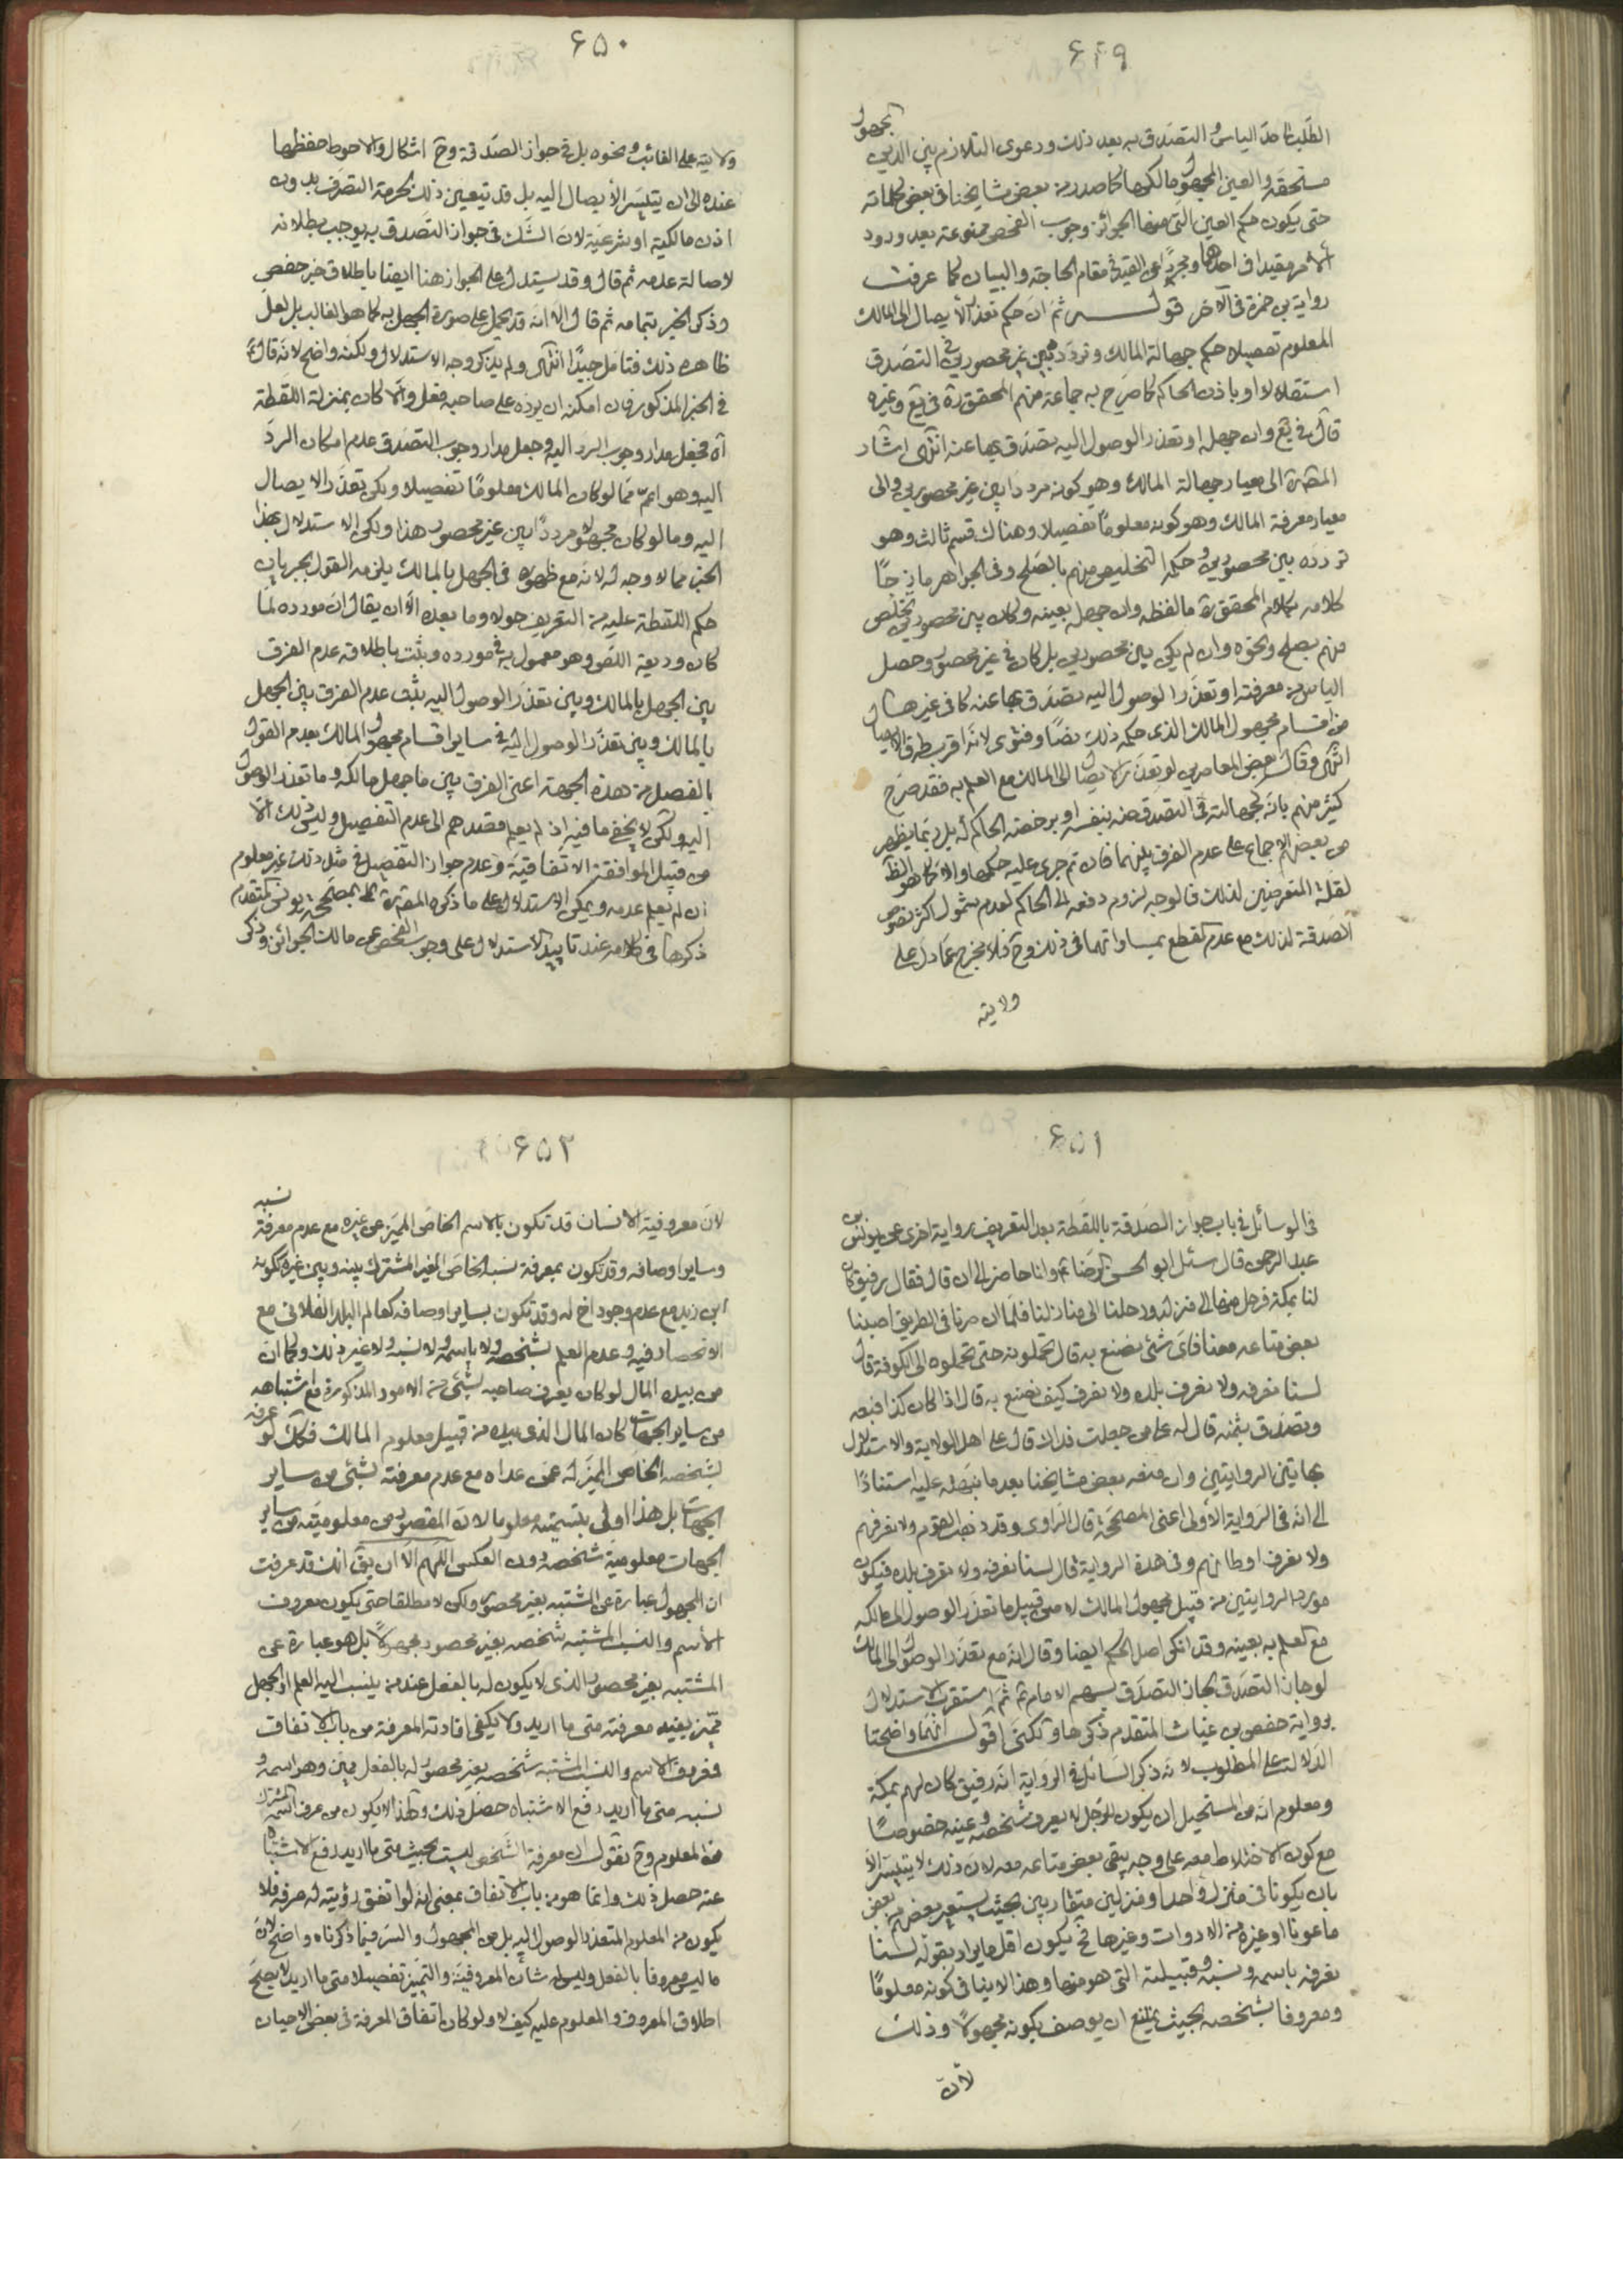 ۶۴۹
الطلب الى حد الياس و التصدق به بعد ذلك ودعوى التلازم بين الدين المجهول
مستحقه والعين المجهول مالكها كما صدر من بعض مشايخنا في بعض كلماته
حتى يكون حكم العين التي منها الجوائز وجوب الفحص ممنوعة بعد ورود
الأمر مقيدا في احدهما ومجردا عن القيد في مقام الحاجة والبيان كما عرفت
رواية بي حمزة في الآخر قولـــه ثم ان حكم تعذر الأيصال الى المالك
المعلوم تفصيلا حكم جهالة المالك وتردده بين غير محصورين في التصدق
استقلالا او باذن الحاكم كما صرح به جماعة منهم المحقق ره في يع وغيره
قال في يع وان جهله او تعذر الوصول اليه تصدق بها عنه انتهى اشار
المصره الى معيار جهالة المالك وهو كونه مرددا بين غير محصورين والى
معيار معرفة المالك وهو كونه معلوما تفصيلا وهناك قسم ثالث وهو
تردده بين محصورين وحكمه التخليص منهم بالصلح وفي الجواهر مازجا
كلامه بكلام المحقق ره مالفظه وان جهله بعينه وكان بين محصورين تخلص
منهم بصلح ونحوه وان لم يكن بين محصورين بل كان في غير محصور وحصل
الياس من معرفته او تعذر الوصول اليه تصدق بها عنه كما في غيرها
من اقسام مجهول المالك الذي حكمه ذلك نصا وفتوى لانه اقرب طرق الايصال
انتهى وقال بعض المعاصرين لو تعذر الايصال الى المالك مع العلم به فقد صرح
كثير منهم بانه كجهالته في التصدق منه بنفسه او برخصة الحاكم له بل ربما يظهر
من بعضهم الاجماع على عدم الفرق بينهما فان تم جرى عليه حكمها والا كما هو الظ
لقلة المتعرضين لذلك فالوجه لزوم دفعه الى الحاكم لعدم شمول اكثر نصوص
الصدقة لذلك مع عدم القطع بمساواتهما في ذلك وح فلا مخرج عما دل على
ولايته
۶۵۰
ولايته على الغائب ونحوه بل في جواز الصدقة وح اشكال والاحوط حفظها
عنده الى ان يتيسر الأيصال اليه بل قد يتعين ذلك لحرمة التصرف بدون
اذن مالكية او شرعية لان الشك في جواز التصدق به يوجب بطلانه
لاصالة عدمه ثم قال وقد يستدل على الجواز هنا ايضا باطلاق خبر حفص
وذكر الخبر بتمامه ثم قال الا انه قد يحمل على صورة الجهل به كما هو الغالب بل لعل
ظاهره ذلك فتامل جيدا انتهى ولم يذكر وجه الاستدلال ولكنه واضح لانه قال
في الخبر المذكور فان امكنه ان يرده على صاحبه فعل والا كان بمنزلة اللقطة
اه فجعل مدار وجوب الرد اليه وجعل مدار وجوب التصدق عدم امكان الرد
اليه وهو اعم مما لو كان المالك معلوما تفصيلا ولكن تعذر الايصال
اليه وما لو كان مجهولا مرددا بين غير محصور هذا ولكن الاستدلال بهذا
الخبر مما لا وجه له لانه مع ظهوره في الجهل بالمالك يلزمه القول بجريان
حكم اللقطة عليه من التعريف حولا وما بعده الا ان يقال ان مورده لما
كان وديعة اللص وهو معمول به في مورده وثبت باطلاقه عدم الفرق
بين الجهل بالمالك وبين تعذر الوصول اليه ثبت عدم الفرق بين الجهل
بالمالك وبين تعذر الوصول اليه في ساير اقسام مجهول المالك بعدم القول
بالفصل من هذه الجهة اعني الفرق بين ما جهل مالكه وما تعذر الوصول
اليه ولكن لا يخفى ما فيه اذ لم يعلم قصدهم الى عدم التفصيل وليس ذلك الا
من قبيل الموافقة الاتفاقية وعدم جواز التفصيل في مثل ذلك غير معلوم
ان لم يعلم عدمه ويمكن الاستدلال على ما ذكره المصره بمصححة يونس المتقدم
ذكرها في كلامه عند تاييد الاستدلال على وجوب الفحص عن مالك الجوائز وذكر
۶۵۱
في الوسائل في باب جواز الصدقة باللقطة بعد التعريف رواية اخرى عن يونس بن
عبد الرحمن قال سئل ابو الحسن الرضا ع وانا حاضر الى ان قال فقال رفيق كان
لنا بمكة فرحل منها الى منزله ورحلنا الى منازلنا فلما ان صرنا في الطريق اصبنا
بعض متاعه معنا فاي شئ نصنع به قال تحملونه حتى تحملوه الى الكوفة قال
لسنا نعرفه ولا نعرف بلده ولا نعرف كيف نصنع به قال اذا كان كذا فبعه
وتصدق بثمنه قال له على من جعلت فداك قال على اهل الولاية والاستدلال
بهاتين الروايتين وان منعه بعض مشايخنا بعد ما نبهه عليه استنادا
الى انه في الرواية الأولى اعني المصححة قال الراوي وقد ذهب القوم ولا نعرفهم
ولا نعرف اوطانهم وفي هذة الرواية قال لسنا نعرفه ولا نعرف بلده فيكون
مورد الروايتين من قبيل مجهول المالك لا من قبيل ما تعذر الوصول الى مالكه
مع العلم به بعينه وقد انكر اصل الحكم ايضا وقال انه مع تعذر الوصول الى المالك
لو جاز التصدق لجاز التصدق بسهم الامام ع ثم استقرب الاستدلال
برواية حفص بن غياث المتقدم ذكرها ولكني اقول انهما واضحتا
الدلالة على المطلوب لانه ذكر السائل في الرواية انه رفيق كان لهم بمكة
ومعلوم انه من المستحيل ان يكون للرجل لا يعرف شخصه وعينه خصوصا
مع كون الاختلاط معه على وجه يبقى بعض متاعه معه لان ذلك لا يتيسر الا
بان يكونا في منزل واحد او منزلين متقاربين بحيث يستعير بعضهم من بعض
ماعونا او غيره من الادوات وغيرها فح يكون اقل ما يراد بقوله لسنا
نعرفه باسمه ونسبه وقبيلته التي هو منها وهذا لا ينافي كونه معلوما
ومعروفا بشخصه بحيث يمتنع ان يوصف بكونه مجهولا وذلك
لأن
۶۵۲
لان معروفية الانسان قد تكون بالاسم الخاص المميز عن غيره مع عدم معرفة نسبه
وساير اوصافه وقد تكون بمعرفة نسبه الخاص الغير المشترك بينه وبين غيره ككونه
ابن زيد مع عدم وجود اخ له وقد تكون بساير اوصافه كعالم البلد الفلاني مع
الانحصار فيه وعدم العلم بشخصه ولا باسمه ولا نسبه ولا غير ذلك وكما ان
من بيده المال لو كان يعرف صاحبه بشئ من الامور المذكورة مع اشتباهه
من ساير الجهات كان المال الذي بيده من قبيل معلوم المالك فكك لو عرفه
بشخصه الخاص المميز له عمن عداه مع عدم معرفته بشئ من ساير
الجهات بل هذا اولى بتسميته معلوما لان المقصود من معلوميته من ساير
الجهات معلومية شخصه دون العكس اللهم الا ان يق انك قد عرفت
ان المجهول عبارة عن المشتبه بغير محصور ولكن لا مطلقا حتى يكون معروف
الأسم والنسب المشتبه شخصه بغير محصور مجهولا بل هو عبارة عن
المشتبه بغير محصور الذي لا يكون له بالفعل عند من ينسب اليه العلم او الجهل
مميز يفيد معرفته متى ما اريد ولا يكفي افادته المعرفة من باب الاتفاق
فمعروف الاسم والنسب المشتبه شخصه بغير محصور له بالفعل مميز وهو اسمه و
نسبه متى ما اريد رفع الاشتباه حصل ذلك ولهذا لا يكون من عرف اسمه المشترك
من المعلوم وح نقول ان معرفة الشخص ليست بحيث متى ما اريد رفع الاشتباه
عنه حصل ذلك وانما هو من باب الاتفاق بمعنى انه لو اتفق رؤيته له عرفه فلا
يكون من المعلوم المتعذر الوصول اليه بل من المجهول والسر فيما ذكرناه واضح لان
ما ليس معروفا بالفعل وليس له شأن المعروفية والتميز تفصيلا متى ما اريد لا يصح
اطلاق المعروف والمعلوم عليه كيف لا ولو كان اتفاق المعرفة في بعض الاحيان